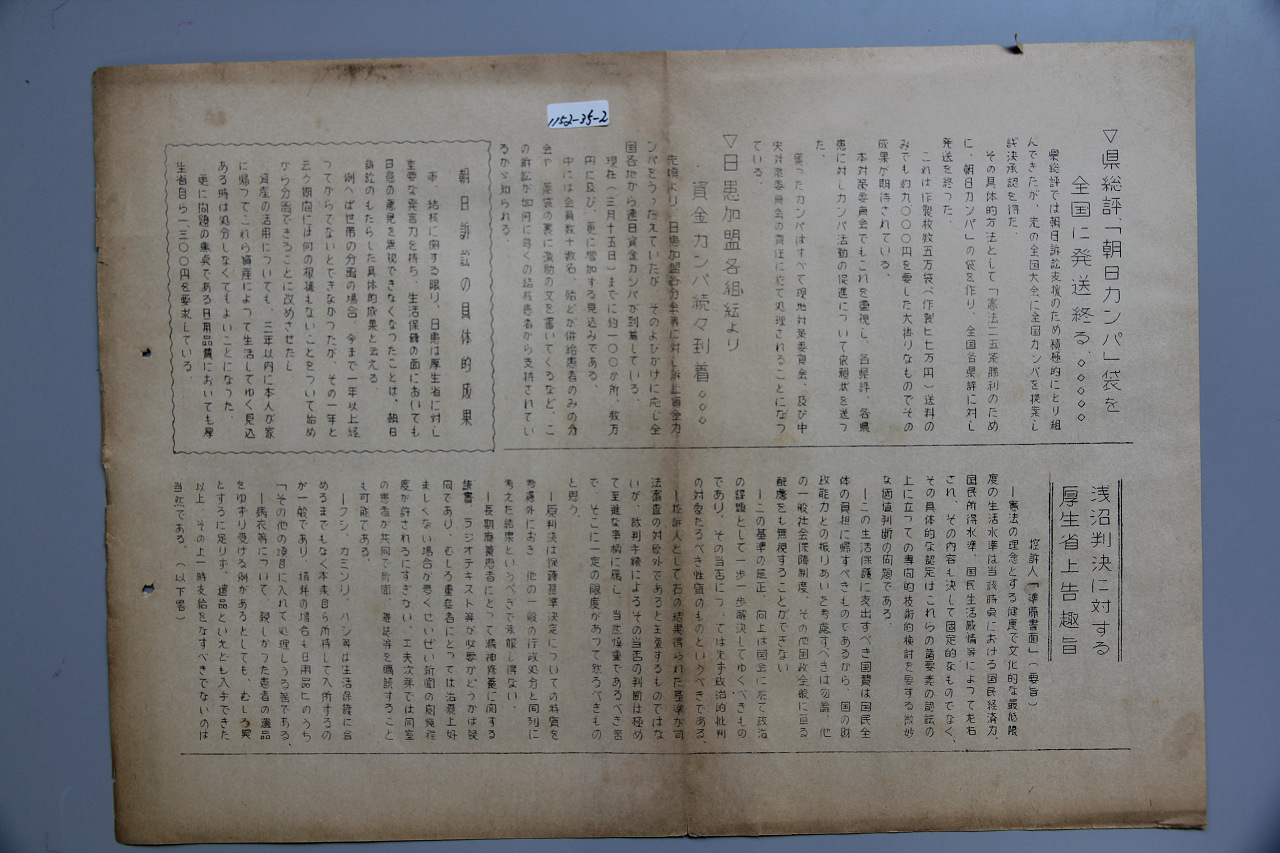 1152-35-2
▽県総評、「朝日カンパ」袋を
全国に発送終る。◇◇◇◇◇
県総評では朝日訴訟支援のため積極的にとり組
んできたが、先の全国大会に全国カンパを提案し
訴決承認を得た。
その具体的方法として「憲法二五条勝利のため
に、朝日カンパ」の袋を作り、全国各県評に対し
発送を終った。
これは作製枚数五万袋(作製七七万円)送料の
みでも約九〇〇〇円を要した大掛りなものでその
成果が期待されている。
本対策委員会でもこれを重視し、各県評、各県
患に対しカンパ活動の促進について依頼状を送っ
た。
集ったカンパはすべて現地対策委員会、及び中
央対策委員会の責任に於て処理されることになっ
ている。
▽日患加盟各組織より
資金カンパ続々到着◇◇◇
先頃より、日患加盟各分会等に対し訴訟資金カ
ンパをうったえていたが、そのよびかけに応じ全
国各地から連日資金カンパが到着している。
現在(三月十五日)までに約一〇〇か所、数万
円に及び、更に増加する見込みである。
中には会員数十数名、殆どが併給患者のみの分
会や、薬袋の裏に激励の文を書いてくるなど、こ
の訴訟が如何に多くの結核患者から支持されてい
るかゞ知られる。
朝日訴訟の具体的成果
事、結核に関する限り、日患は厚生省に対し
重要な発言力を持ち、生活保護の面においても
日患の意見を無視できなくなったことは、朝日
訴訟のもたらした具体的成果と云える。
例へば世帯の分離の場合、今まで一年以上経
ってからでないとできなかったが、その一年と
云う期間には何の根拠もないことをついて始め
から分離できることに改めさせたし
資産の活用についても、三年以内に本人が家
に帰ってこれら資産によって生活してゆく見込
ある時は処分しなくてもよいことになった。
更に問題の焦点である日用品費においても厚
生省自ら一三〇〇円を要求している。
浅沼判決に対する
厚生省上告趣旨
控訴人「準備書面」(要旨)
―憲法の理念とする健康で文化的な最低限
度の生活水準は当該時点における国民経済力、
国民所得水準、国民生活感情等によって左右
され、その内容も決して固定的なものでなく、
その具体的な認定はこれらの諸要素の認識の
上に立っての専門的技術的検討を要する微妙
な価値判断の問題である。
―この生活保護に支出すべき国費は国民全
体の負担に帰すべきものであるから、国の財
政能力との振りあいを考慮すべきは勿論、他
の一般社会保障制度、その他国政全般に亘る
配慮をも無視することができない
―この基準の是正、向上は国会に於て政治
の課題として一歩一歩解決してゆくべきもの
であり、その当否については先ず政治的批判
の対象たるべき性質のものというべきである。
―控訴人として右の結果得られた基準が司
法審査の対象外であると主張するものではな
いが、裁判手続によるその当否の判断は極め
て至難な事柄に属し、当然慎重であるべき筈
で、そこに一定の限度があって然るべきもの
と思う。
―原判決は保護基準決定についての特質を
考慮外におき、他の一般の行政処分と同列に
考えた結果というべきで承服し得ない。
―長期療養患者にとって精神修養に関する
読書、ラジオテキスト等が必要かどうかは疑
問であり、むしろ重症者にとっては治療上好
ましくない場合が多くせいぜい新聞の閲読程
度が許されるにすぎない、工夫次第では同室
の患者が共同で新聞、雑誌等を購読すること
も可能である。
―クシ、カミソリ、ハシ等は生活保護に含
めるまでもなく本来自ら所持して入所するの
が一般であり、損耗の場合も日用品にのうち
「その他の項目に入れて処理しうる筈である、
―病衣等について、親しかった患者の遺品
をゆずり受ける例があるとしても、むしろ異
とするに足りず、遺品といえども入手できた
以上、その上一時支給をなすべきでないのは
当然である。(以下略)